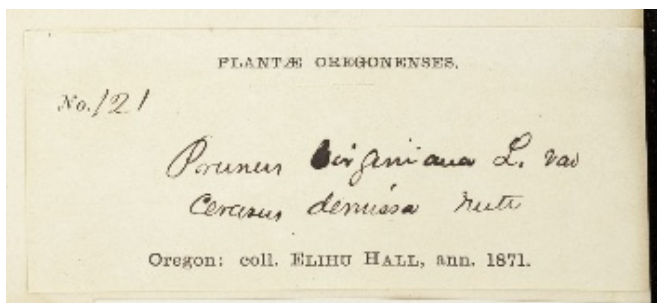 PLANTÆ OREGONENSES.
No. 121
Prunus virginiana L. var
Cerasus demissa Nutt
Oregon: coll. ELIHU HALL, ann. 1871.